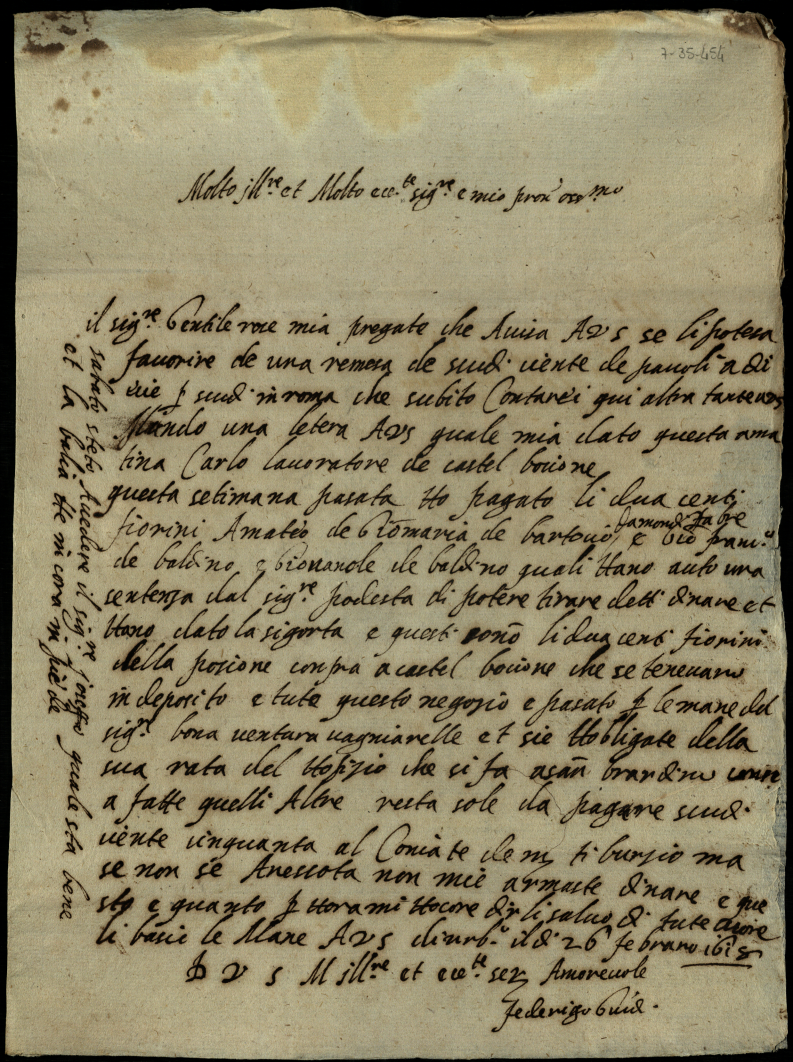 7-35-454
Molto jll.re et Molto ecc.te sig.re e mio pron oss.mo
il sig.re Gentile me mia pregate che Avisa A V S se li poteva
favorire de una remesa de scudi vente de pavoli a di
ecie p scudi in roma che subito Contarei qui altra tante
Mando una letera A V S quale mia dato questa ama
tina Carlo lavoratore de castel bocione
questa setimana pasata Ho pagato li dua centi
fiorini Amateo de Giomaria de bartovio e Gio franc.o
de baldino e Giovanole de baldino quali Hano auto una
sentenza dal sig.re podesta di potere tirare detti dinare et
Hano dato la sigorta e questi sono li dua centi fiorini
della posione conpra a castel bocione che se tenevano
in deposito e tute questo negozio e pasato p le mane del
sig.re bona ventura vagniarelle et sie Hobligate della
sua rata del Hofizio che si fa a san brandino come
a fatte quelli Altre resta sole da pagare scudi
vente cinquanta al de m tiburzio ma
se non se non mie armaste dinare e que
sto e quanto p Hora mi Hocore dirli saluo di tute cuore
li bascio le Mane A V S di urb.o il di 26 febraro 1618
D V S M jll.re et ecc.te ser Amorevole
federigo Guid.
sabato steti Avedere il sig.re josefo quale sta bene
et la balia He in cora in piede